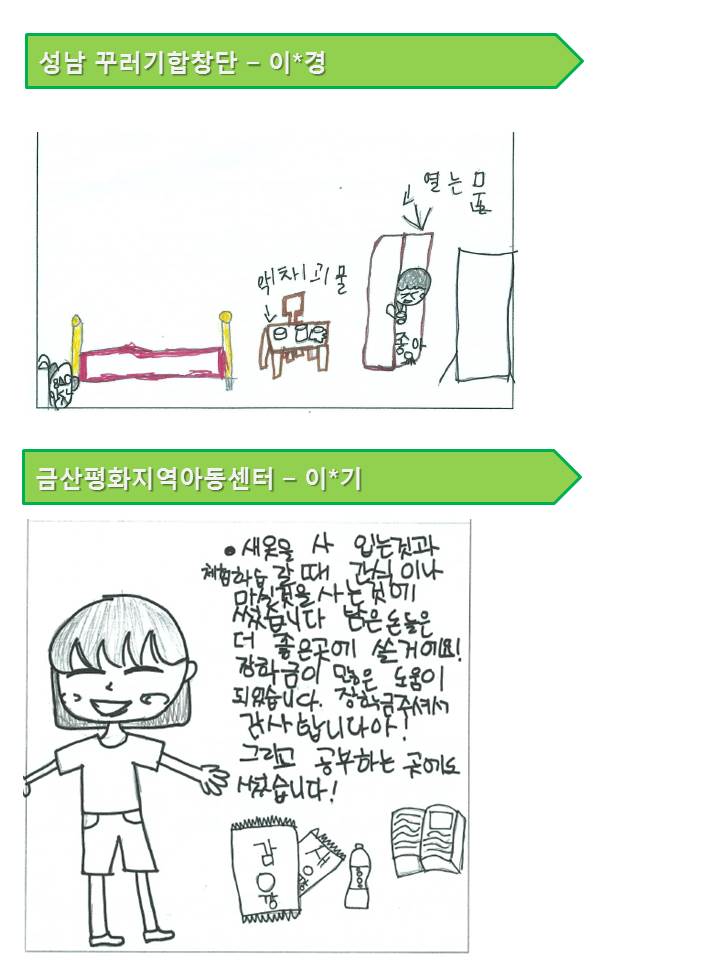 성남 꾸러기합창단 – 이*경
열는 문
악차 괴물
좋아
금산평화지역아동센터 – 이*기
• 새옷을 사 입는것과
체험학습 갈 때 간식이나
마실것을 사는 것에
썼습니다 남은 돈들은
더 좋은곳에 쓸거에요!
장학금이 많은 도움이
되었습니다. 장학금주셔서
감사합니다아!
그리고 공부하는 곳에도
썼습니다!
감
새